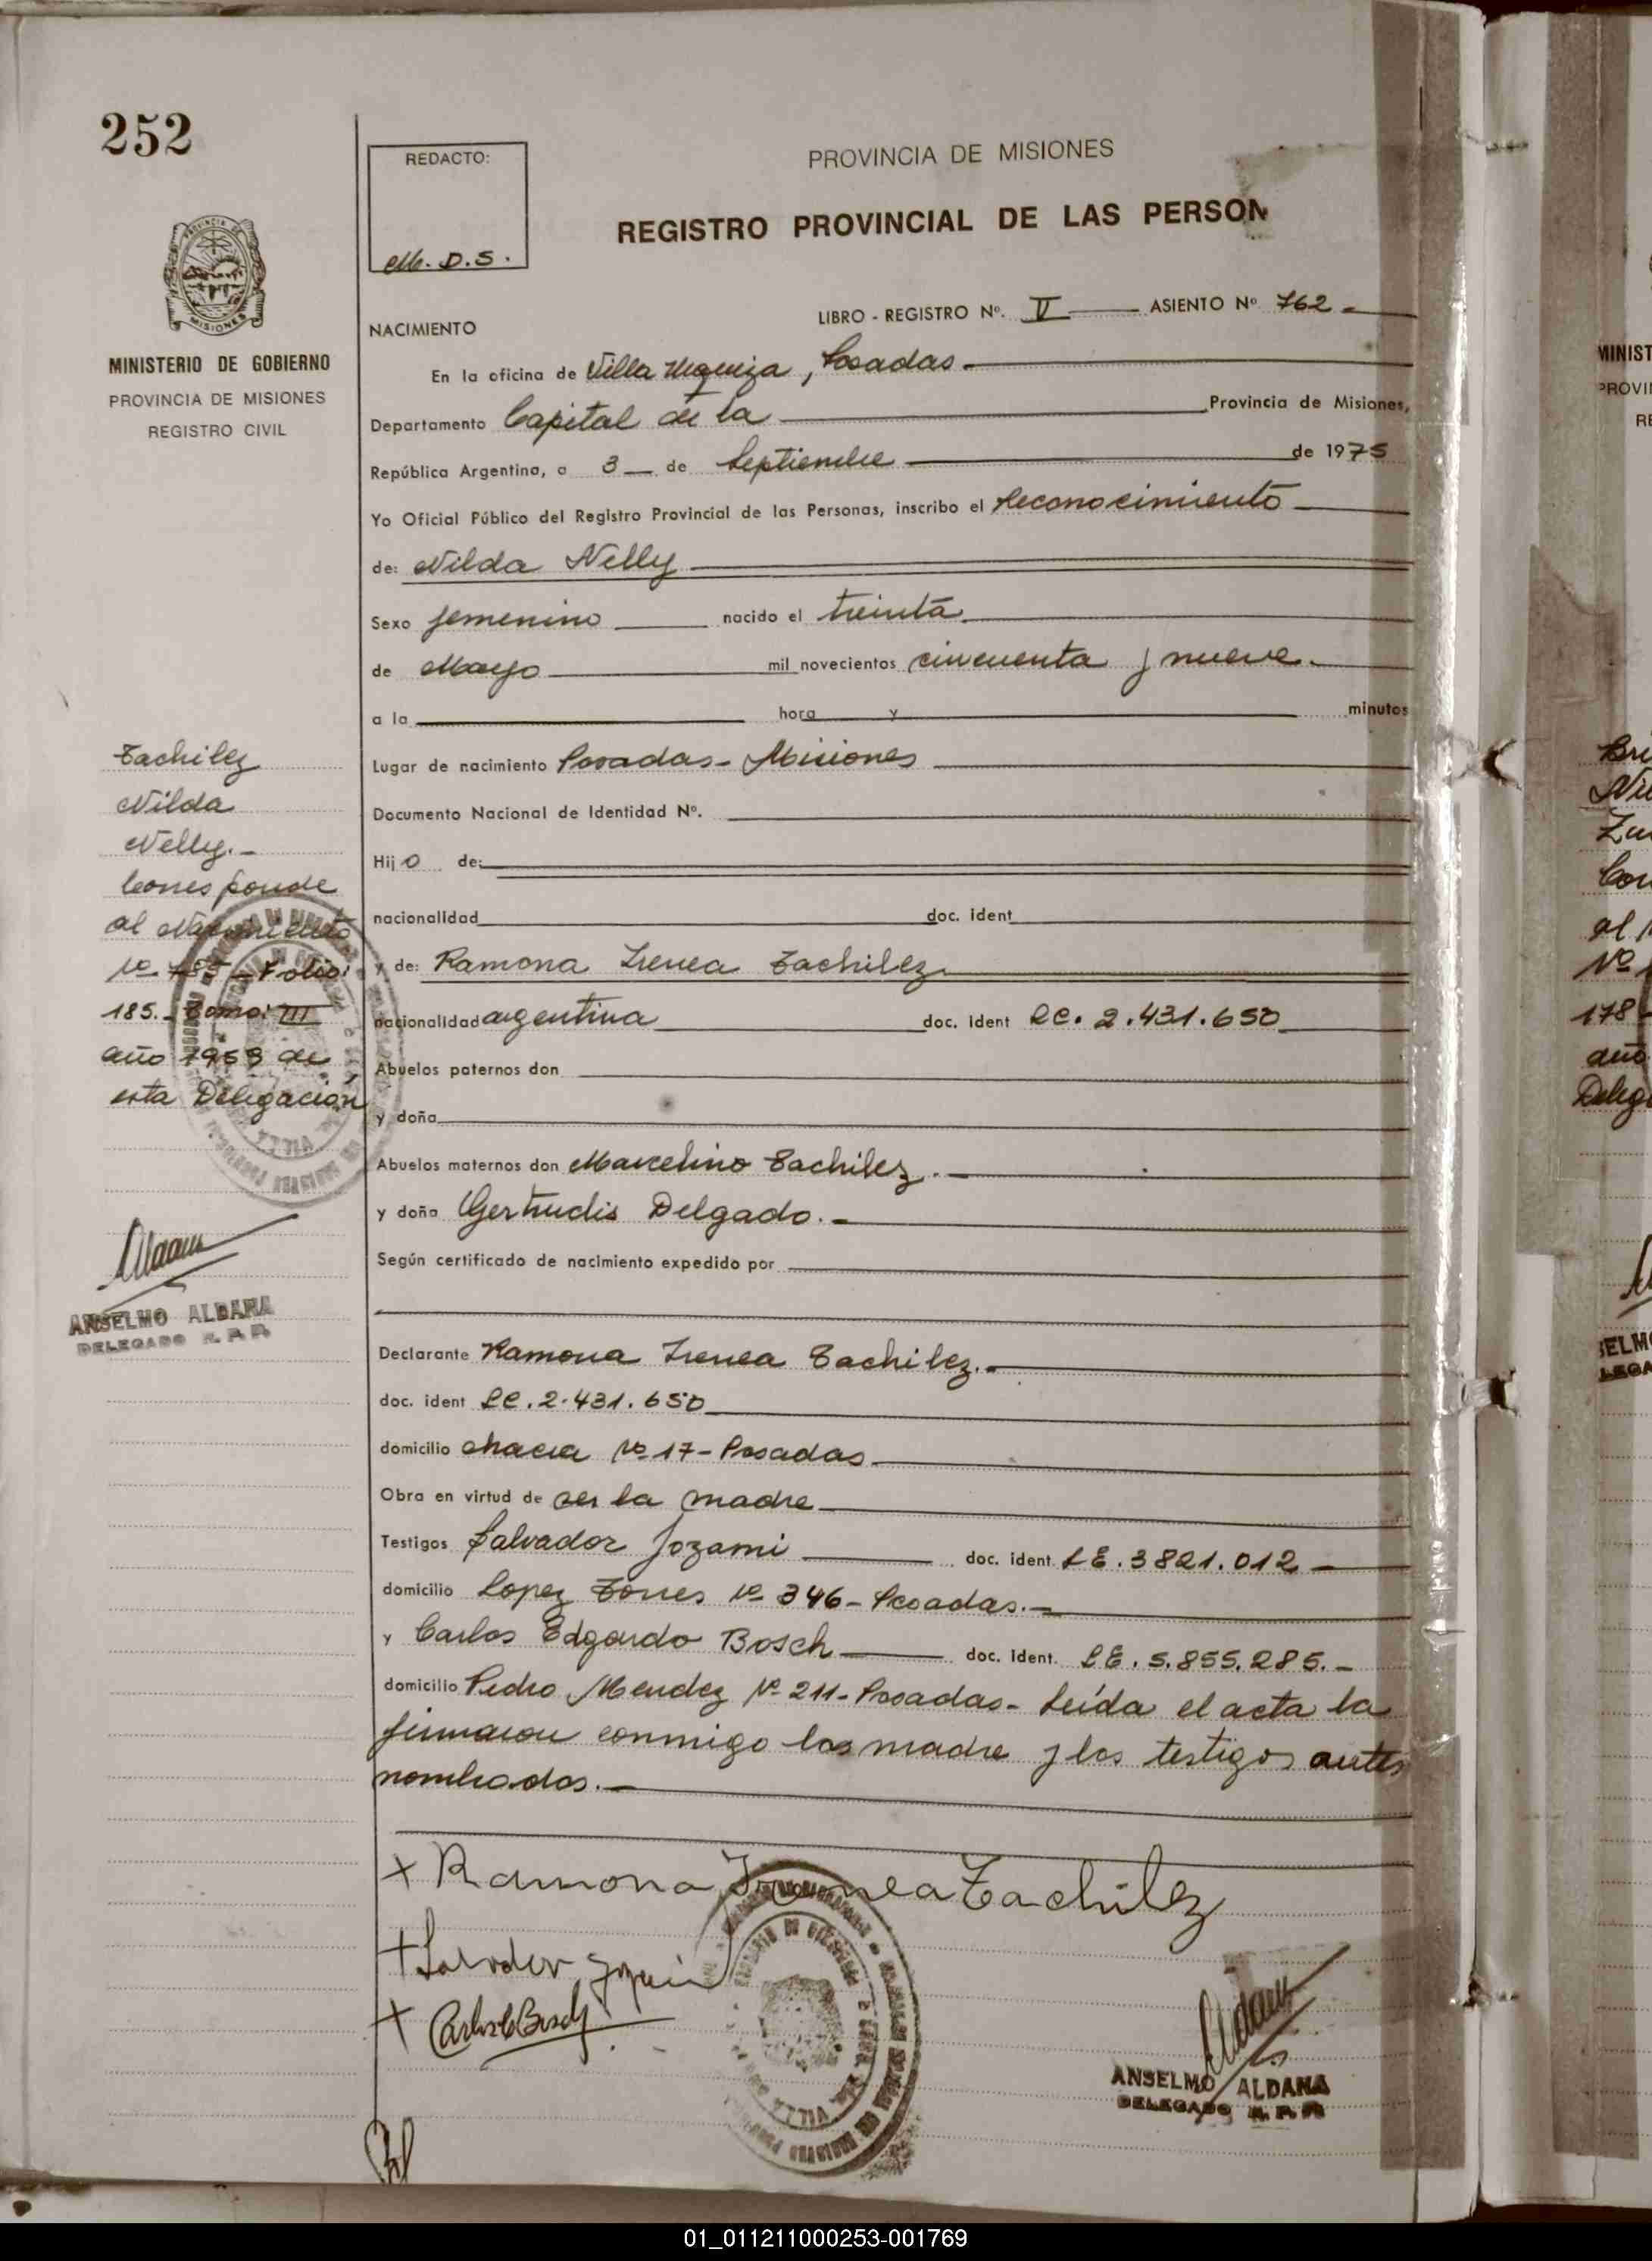 252
REDACTO:
M. D. S.
PROVINCIA DE MISIONES
REGISTRO PROVINCIAL DE LAS PERSON
MINISTERIO DE GOBIERNO
PROVINCIA DE MISIONES
REGISTRO CIVIL
LIBRO - REGISTRO Nº. V ASIENTO Nº 762 -
NACIMIENTO
En la oficina de Villa Urquiza, Posadas -
Departamento Capital de la Provincia de Misiones,
República Argentina, a 3 de Septiembre de 1975
Yo Oficial Público del Registro Provincial de las Personas, inscribo el Reconocimiento
de: Nilda Nelly
Sexo femenino nacido el treinta
de Mayo mil novecientos cincuenta y nueve.
a la hora y minutos
Lugar de nacimiento Posadas - Misiones
Documento Nacional de Identidad Nº.
Hijo de:
nacionalidad doc. ident
y de: Ramona Irenea Tachilez
nacionalidad argentina doc. ident LC. 2.431.650
Abuelos paternos don
y doña
Abuelos maternos don Marcelino Tachilez. -
y doña Gertrudis Delgado. -
Según certificado de nacimiento expedido por
Declarante Ramona Irenea Tachilez. -
doc. ident LC. 2.431.650
domicilio chacra Nº 17 - Posadas
Obra en virtud de ser la madre
Testigos Salvador Jozami doc. ident. LE. 3821.012 -
domicilio Lopez Torres Nº 346 - Posadas. -
y Carlos Edgardo Bosch doc. ident. LE. 5.855.285. -
domicilio Pedro Mendez Nº 211 - Posadas - Leída el acta la
firmaron conmigo las madre y los testigos antes
nombrados. -
Tachilez
Nilda
Nelly. -
Corresponde
al Nacimiento
Nº 785 - Folio:
185. - Tomo: III
año 1959 de
esta Delegación
ANSELMO ALDANA
DELEGADO R. P. P.
+ Ramona Irenea Tachilez
+ Salvador Jozami
+ Carlos E Bosch
ANSELMO ALDANA
DELEGADO R. P. P.
MINIST
PROVI
RE
Bri
Ni
Zu
Cor
al
Nº
178 -
año
Deleg
SELM
LEGA
01_011211000253-001769